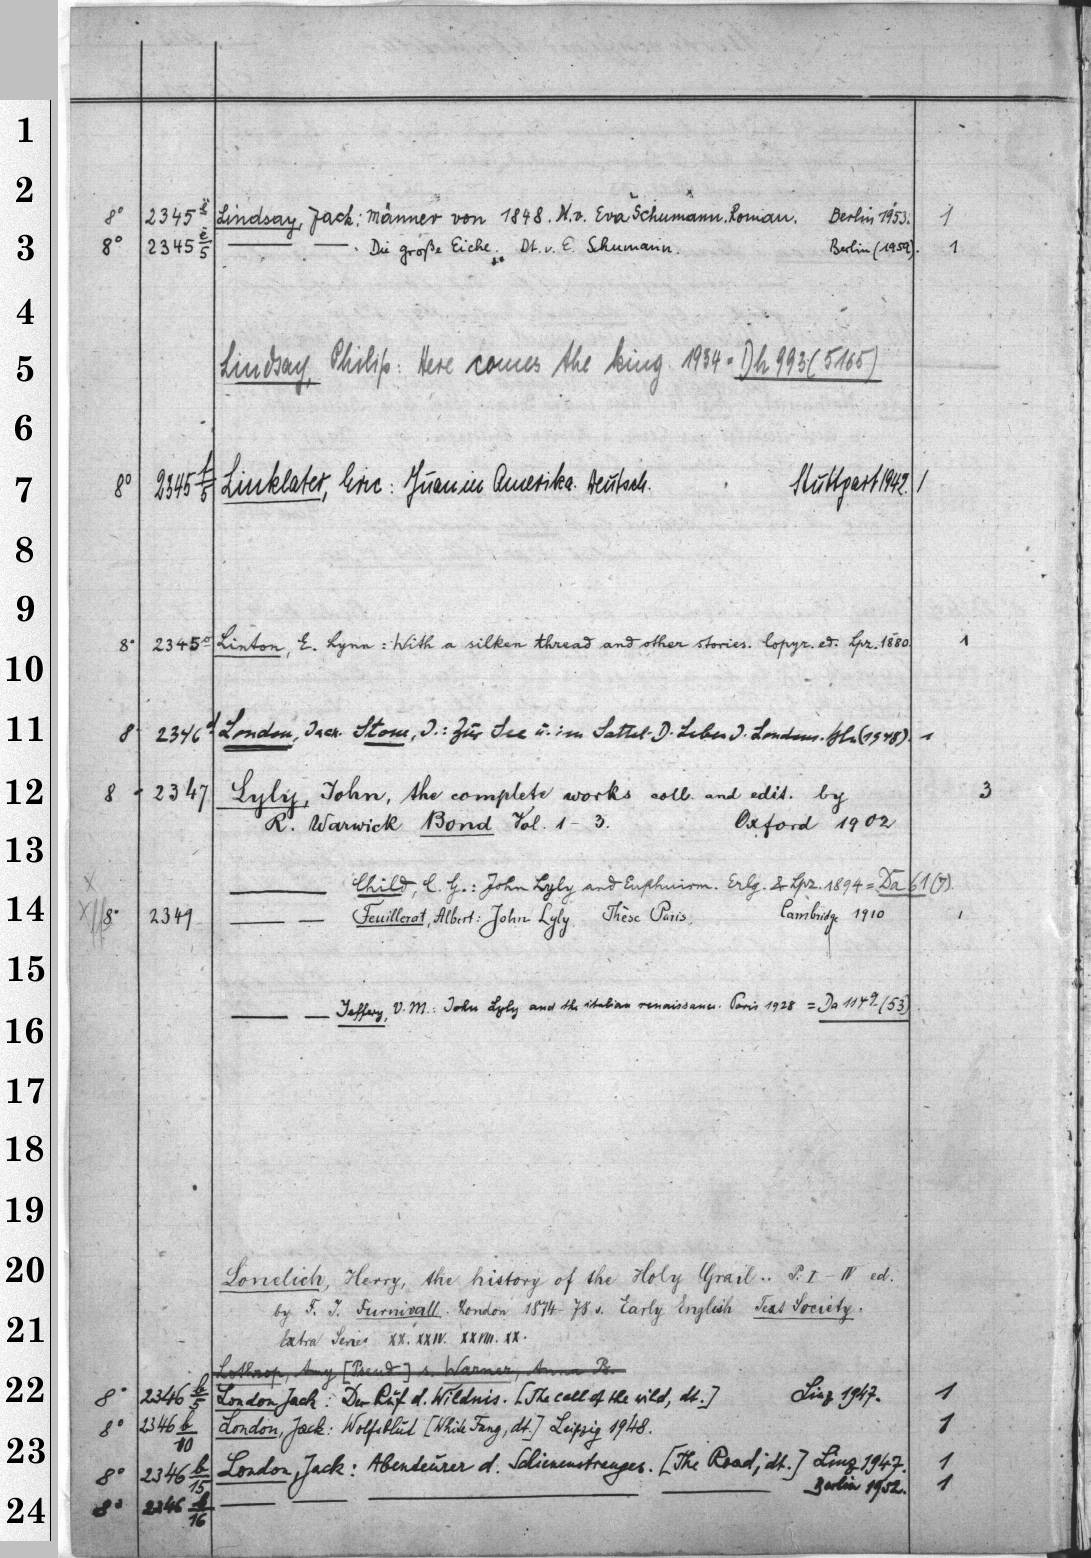 1
2
8° 2345 Lindsay, Jack: Männer von 1848. A.v. Eva Schumann. Roman. Berlin 1953. 1
3
8° 2345 e/5 —— —. Die große Eiche. Dt. v. E. Schumann. Berlin (1959). 1
4
5
Lindsay, Philip: Here comes the king 1934 = Dh 993 (5165)
6
7
8° 2345 f/5 Linklater, Eric: Juan in Amerika. Deutsch. Stuttgart 1942. 1
8
9
8° 2345 Linton, E. Lynn: With a silken thread and other stories. Copyr. ed. Lpz. 1880. 1
10
11
8 2346 d London, Jack. Stone, I.: Zur See u. im Sattel. D. Leben J. Londons. (1948). 1
12
8 2347 Lyly, John, the complete works coll. and edit. by 3
R. Warwick Bond Vol. 1-3. Oxford 1902
13
X —— Child, C. G.: John Lyly and Euphuism. Erlg. & Lpz. 1894 = Da 61 (7).
14
X 8° 2349 —— — Feuillerat, Albert: John Lyly Thèse Paris. Cambridge 1910 1
15
—— — Jeffery, V. M.: John Lyly and the italian renaissance. Paris 1928 = Da 1149 (53)
16
17
18
19
20
Lonelich, Herry, the history of the Holy Grail .. P. I-IV ed.
by F. J. Furnivall. London 1874-78 s. Early English Text Society.
21
Extra Series XX. XXIV. XXVIII. XX.
Lothrop, Amy [Pseud] s. Warner, Anna B.
22
8° 2346 b/5 London Jack: Der Ruf d. Wildnis. [The call of the wild, dt.] Linz 1947. 1
8° 2346 b/10 London, Jack: Wolfsblut [White Fang, dt.] Leipzig 1948. 1
23
8° 2346 b/15 London, Jack: Abenteurer d. Schienenstranges. [The Road, dt.] Linz 1947. 1
24
8° 2346 b/16 —— —— —— —— Berlin 1952. 1